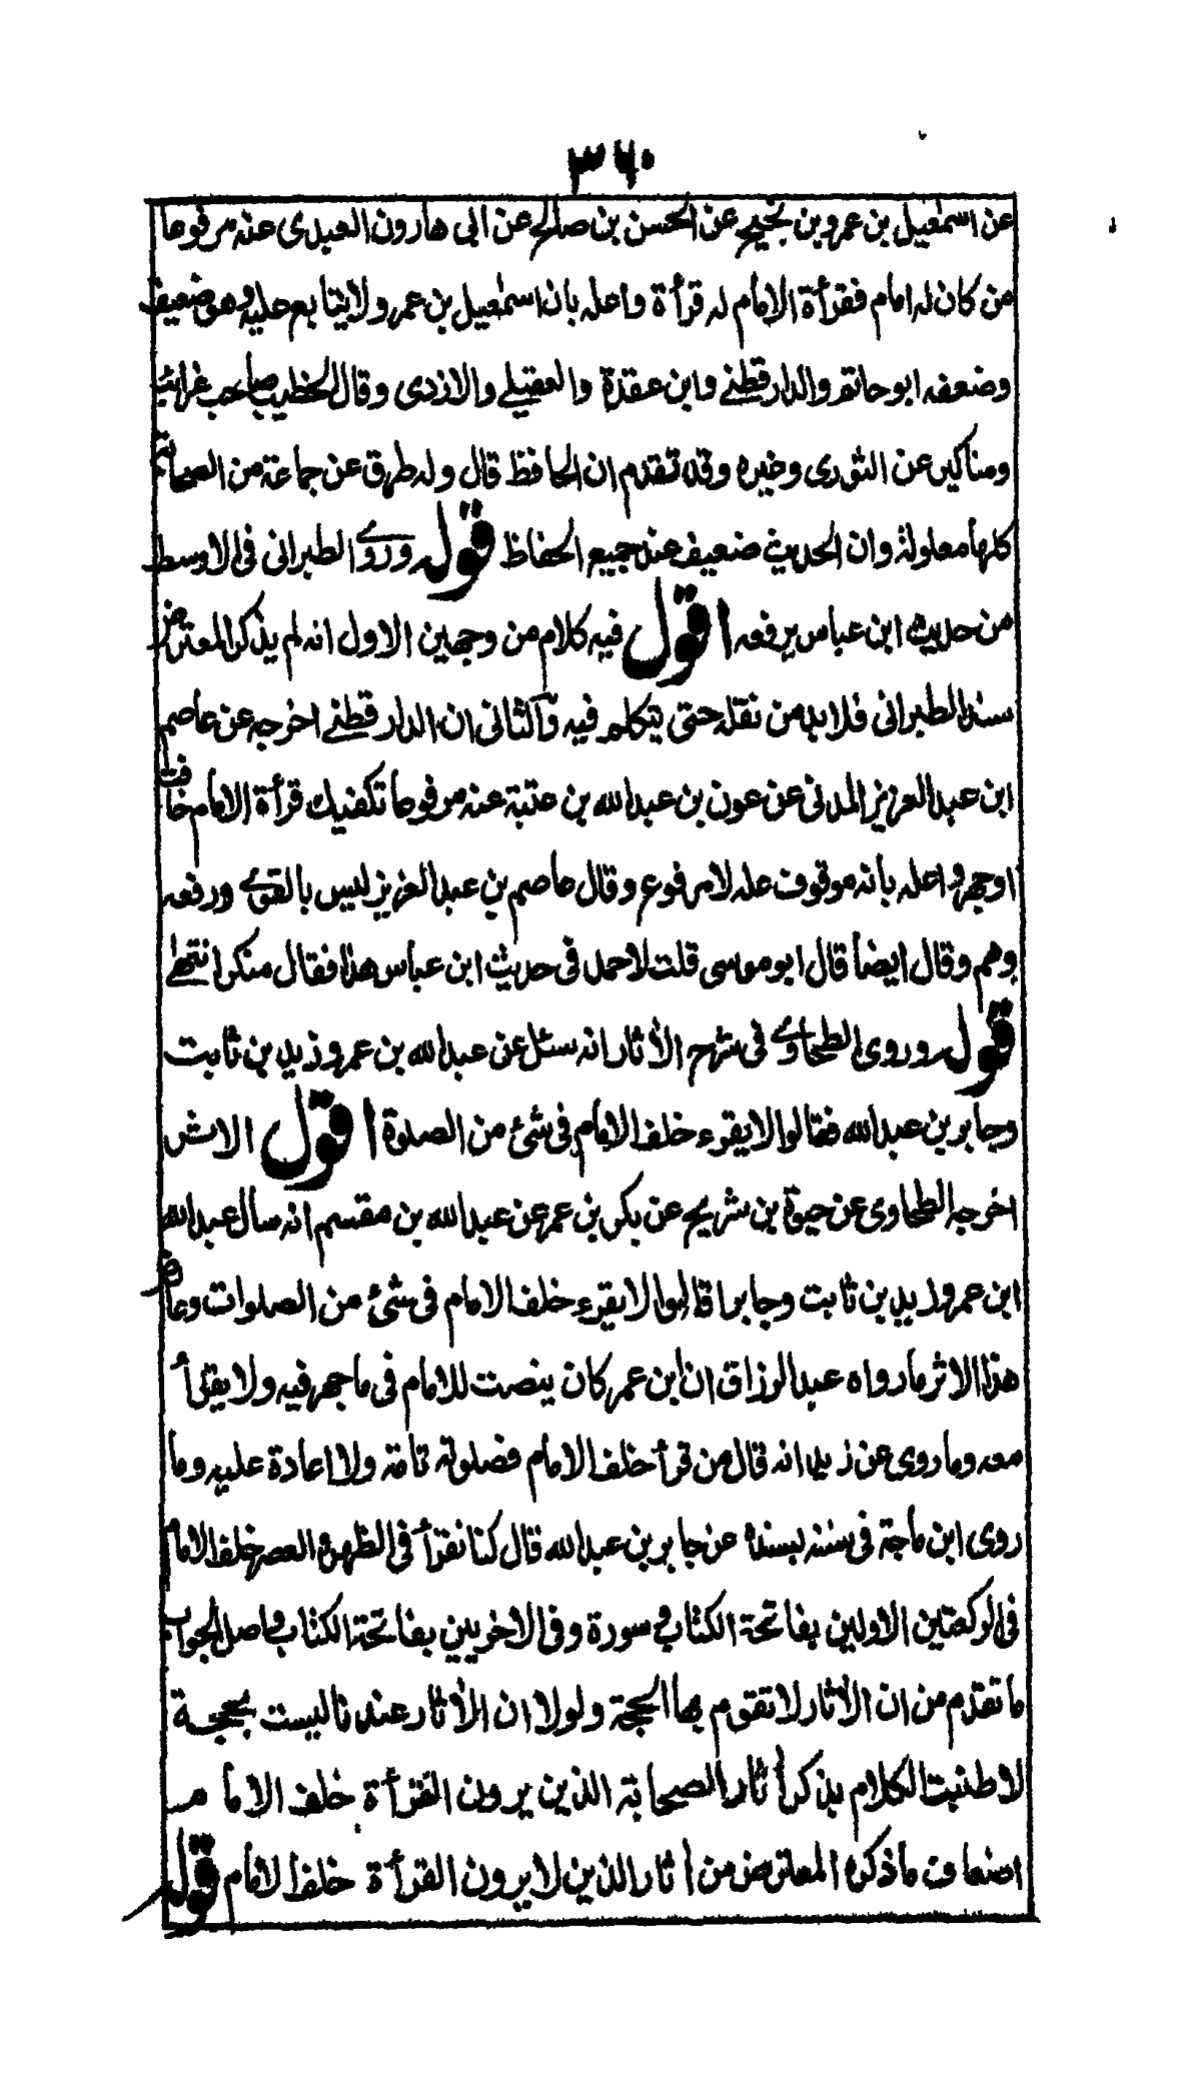 ٣٦٠
عن اسمٰعيل بن عمرو بن نجيح عن الحسن بن صالح عن ابى هارون العبدى عنه مرفوعا
من كان له امام فقرأة الامام له قرأة واعله بان اسمٰعيل بن عمرو لا يتابع عليه وهو ضعيف
وضعفه ابو حاتم والدارقطنے وابن عقدة والعقيلے والازدى وقال الخطيب صاحب غرائب
ومناكير عن الثورى وغيره وقد تقدم ان الحافظ قال وله طرق عن جماعة من الصحابة
كلها معلولة وان الحديث ضعيف عند جميع الحفاظ قوله وروے الطبرانى فى الاوسط
من حديث ابن عباس يرفعه اقول فيه كلام من وجهين الاول انه لم يذكر المعترض
سند الطبرانى فلا بد من نقله حتى يتكلم فيه والثانى ان الدارقطنے اخرجه عن عاصم
ابن عبد العزيز المدنى عن عون بن عبد الله بن عتبة عنه مرفوعا تكفيك قرأة الامام خافت
اوجهر واعله بانه موقوف عله لا مرفوع وقال عاصم بن عبد العزيز ليس بالقوے ورفعه
وهم وقال ايضا قال ابو موسى قلت لاحمد فى حديث ابن عباس هذا فقال منكر انتهٰے
قوله وروى الطحاوے فى شرح الأثار انه سئل عن عبد الله بن عمر وزيد بن ثابت
وجابر بن عبد الله فقالوا لا يقرء خلف الامام فى شئ من الصلوة اقول الاثر
اخرجه الطحاوى عن حيوة بن شريح عن بكر بن عمر عن عبيد الله بن مقسم انه سأل عبد الله
ابن عمر وزيد بن ثابت وجابرا قالوا لا يقرء خلف الامام فى شئ من الصلوات وعارض
هذا الاثر ما رواه عبد الرزاق ان ابن عمر كان ينصت للامام فى ما جهر فيه ولا يقرأ
معه وما روى عن زيد انه قال من قرأ خلف الامام فصلوته تامة ولا اعادة عليه وما
روى ابن ماجة فى سننه بسنده عن جابر بن عبد الله قال كنا نقرأ فى الظهر والعصر خلف الامام
فى الركعتين الاوليين بفاتحة الكتاب و سورة وفى الاخريين بفاتحة الكتاب وحاصل الجواب
ما تقدم من ان الأثار لا تقوم بها الحجة ولولا ان الأثار عندنا ليست بحجة
لاطنبت الكلام بذكر أثار الصحابة الذين يرون القرأة خلف الامام
اضعاف ما ذكره المعترض من أثار الذين لا يرون القرأة خلف الامام قوله